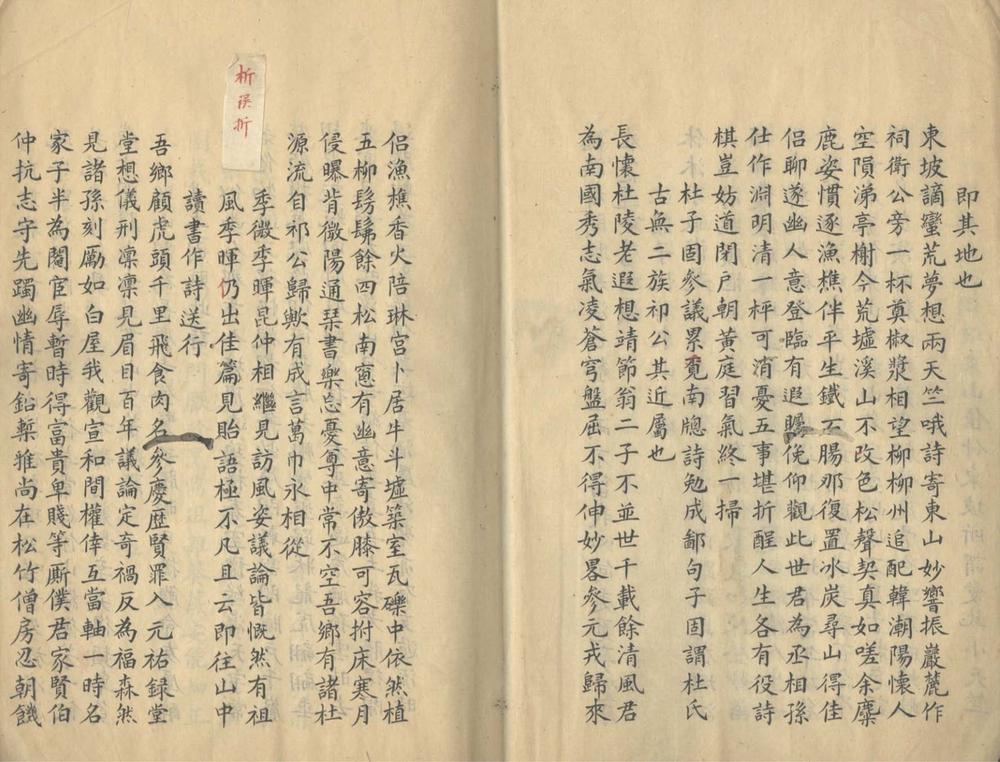 即其地也
東坡謫蠻荒夢想兩天竺哦詩寄東山妙響振巖麓作
祠衛公旁一杯奠椒漿相望柳柳州追配韓潮陽懷人
空隕涕亭榭今荒墟溪山不改色松聲契真如嗟余麋
鹿姿慣逐漁樵伴平生鐵石腸那復置冰炭尋山得佳
侶聊遂幽人意登臨有遐矚俛仰觀此世君為丞相孫
仕作淵明清一枰可消憂五事堪折醒人生各有役詩
棋豈妨道閉戶朝黃庭習氣終一掃
杜子固參議累覔南牕詩勉成鄙句子固謂杜氏
古無二族祁公其近屬也
長懷杜陵老遐想靖節翁二子不並世千載餘清風君
為南國秀志氣凌蒼穹盤屈不得伸妙畧參元戎歸來
侶漁樵香火陪琳宮卜居牛斗墟築室瓦礫中依然植
五柳髣髴餘四松南窻有幽意寄傲膝可容拊床寒月
侵曝背微陽通琴書樂忘憂尊中常不空吾鄉有諸杜
源流自祁公歸歟有成言葛巾永相從
季微季暉昆仲相繼見訪風姿議論皆慨然有祖
風季暉仍出佳篇見貽語極不凡且云即往山中
讀書作詩送行
吾鄉顧虎頭千里飛食肉名參慶歷賢罪入元祐録堂
堂想儀刑凜凜見眉目百年議論定奇禍反為福森然
見諸孫刻勵如白屋我觀宣和間權倖互當軸一時名
家子半為閹宦辱暫時得富貴卑賤等厮僕君家賢伯
仲抗志守先躅幽情寄鉛槧雅尚在松竹僧房忍朝饑
析誤折